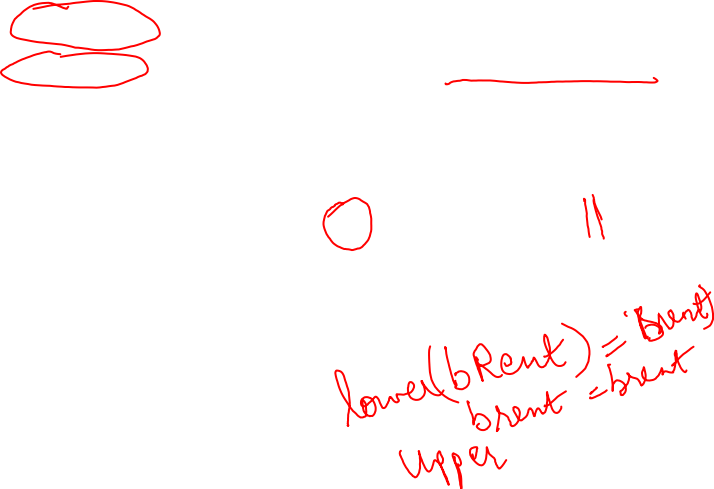 lower(bRent) = 'Brent'
brent = brent
Upper